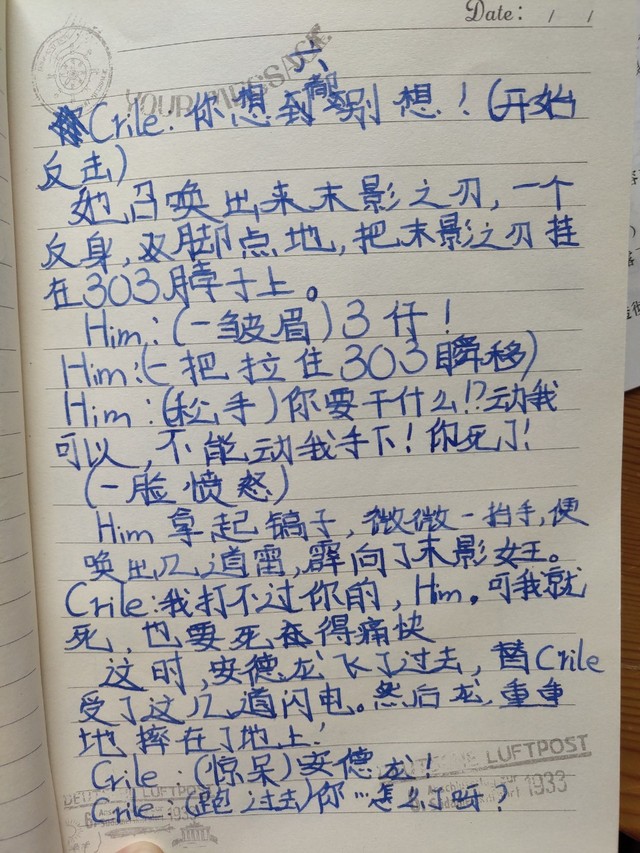 Date: / /
YOUR MESSAGE
六
Crile：你想都别想！(开始
反击)
她召唤出来末影之刃，一个
反身，双脚点地，把末影之刃挂
在303脖子上。
Him：(一皱眉) 3仔！
Him：(一把拉住303瞬移)
Him：(松手) 你要干什么!?动我
可以，不能动我手下！你死了！
(一脸愤怒)
Him拿起镐子，微微一抬手，便
唤出几道雷，霹向了末影女王。
Crile：我打不过你的，Him。可我就
死，也要死得痛快
这时，安德龙飞了过去，替Crile
受了这几道闪电。然后龙重重
地摔在了地上！
LUFTPOST
Crile：(惊呆)安德龙！
1933
LUFTPOST
Crile：(跑过去)你…怎么了呀？
1933